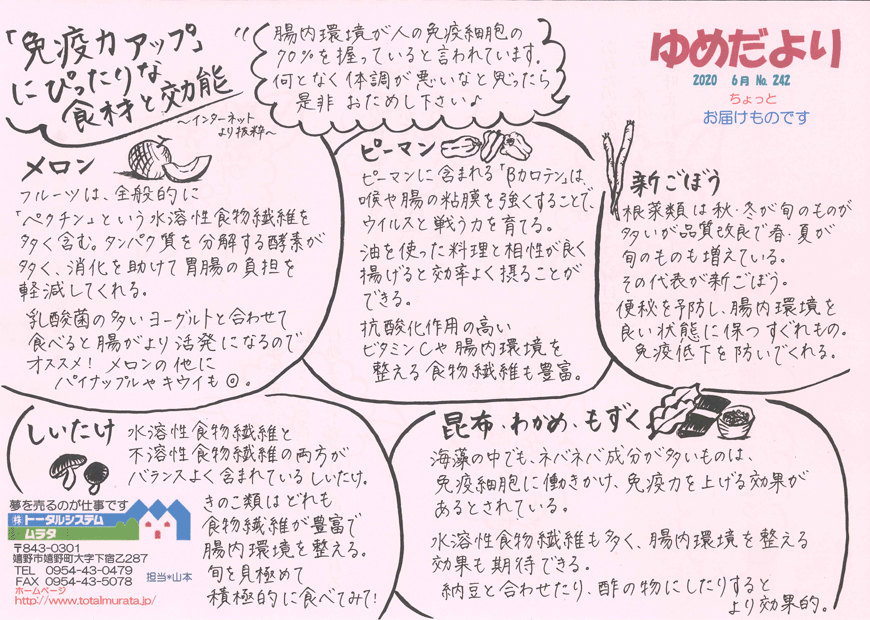 「免疫力アップ」
にぴったりな
食材と効能
〜インターネット
より抜粋〜
腸内環境が人の免疫細胞の
70%を握っていると言われています。
何となく体調が悪いなと思ったら
是非 おためし下さい♪
ゆめだより
2020 6月 No. 242
ちょっと
お届けものです
メロン
フルーツは、全般的に
「ペクチン」という水溶性食物繊維を
多く含む。タンパク質を分解する酵素が
多く、消化を助けて胃腸の負担を
軽減してくれる。
乳酸菌の多いヨーグルトと合わせて
食べると腸がより活発になるので
オススメ! メロンの他に
パイナップルやキウイも◎。
ピーマン
ピーマンに含まれる「βカロテン」は、
喉や腸の粘膜を強くすることで、
ウイルスと戦う力を育てる。
油を使った料理と相性が良く
揚げると効率よく摂ることが
できる。
抗酸化作用の高い
ビタミンCや腸内環境を
整える食物繊維も豊富。
新ごぼう
根菜類は秋・冬が旬のものが
多いが品質改良で春・夏が
旬のものも増えている。
その代表が新ごぼう。
便秘を予防し、腸内環境を
良い状態に保つすぐれもの。
免疫低下を防いでくれる。
しいたけ
水溶性食物繊維と
不溶性食物繊維の両方が
バランスよく含まれているしいたけ。
きのこ類はどれも
食物繊維が豊富で
腸内環境を整える。
旬を見極めて
積極的に食べてみて!
昆布、わかめ、もずく
海藻の中でも、ネバネバ成分が多いものは、
免疫細胞に働きかけ、免疫力を上げる効果が
あるとされている。
水溶性食物繊維も多く、腸内環境を整える
効果も期待できる。
納豆と合わせたり、酢の物にしたりすると
より効果的。
夢を売るのが仕事です
㈱トータルシステム
ムラタ
〒843-0301
嬉野市嬉野町大字下宿乙287
TEL 0954-43-0479
FAX 0954-43-5078
担当*山本
ホームページ
http://www.totalmurata.jp/